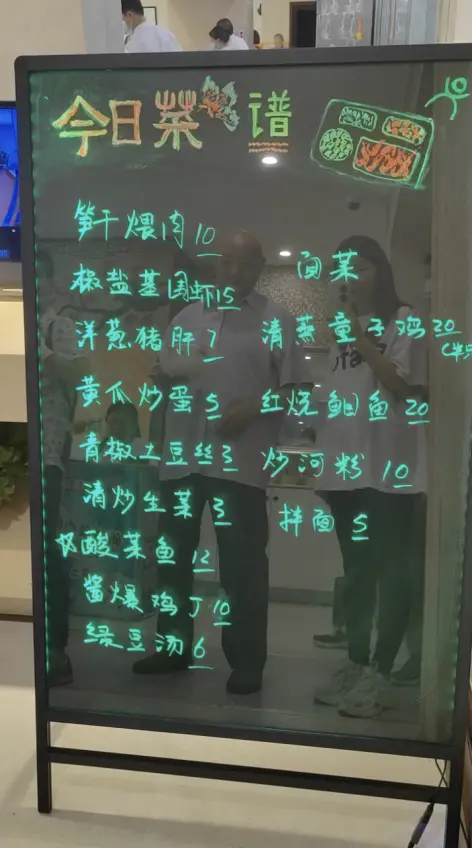 今日菜谱
10
笋干煨肉 10
椒盐基围虾 15
洋葱猪肝 7
黄瓜炒蛋 5
青椒土豆丝 3
清炒生菜 3
酸菜鱼 12
酱爆鸡丁 10
绿豆汤 6
面菜
清蒸童子鸡 20
红烧鲫鱼 20
炒河粉 10
拌面 5